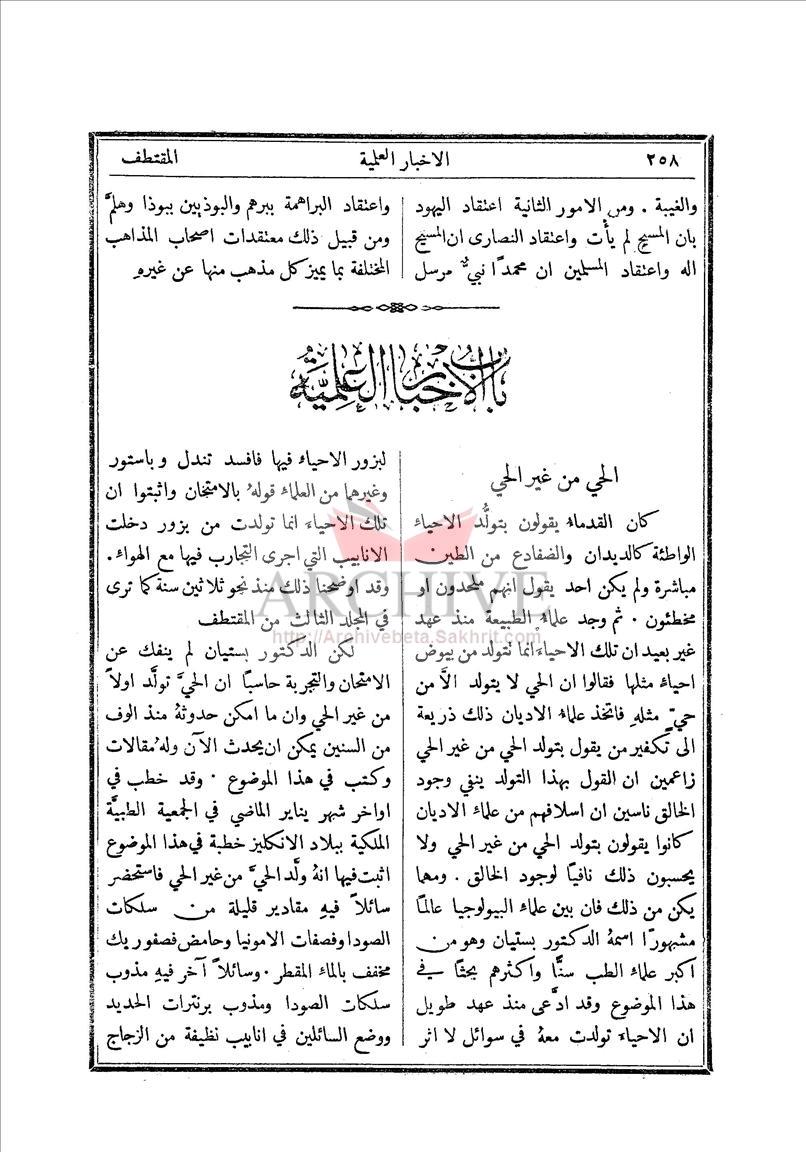 ٢٥٨
الاخبار العلمية
المقتطف
والغيبة . ومن الامور الثانية اعتقاد اليهود
بان المسيح لم يأت واعتقاد النصارى ان المسيح
اله واعتقاد المسلمين ان محمدًا نبيٌّ مرسل
واعتقاد البراهمة ببرهم والبوذيين ببوذا وهلمَّ
ومن قبيل ذلك معتقدات اصحاب المذاهب
المختلفة بما يميز كل مذهب منها عن غيرهِ
باب الاخبار العلميَّة
الحي من غير الحي
كان القدماء يقولون بتولُّد الاحياء
الواطئة كالديدان والضفادع من الطين
مباشرة ولم يكن احد يقول انهم ملحدون او
مخطئون . ثم وجد علماء الطبيعة منذ عهد
غير بعيد ان تلك الاحياء انما تتولد من بيوض
احياء مثلها فقالوا ان الحي لا يتولد الاَّ من
حيّ مثلهِ فاتخذ علماء الاديان ذلك ذريعة
الى تكفير من يقول بتولد الحي من غير الحي
زاعمين ان القول بهذا التولد ينفي وجود
الخالق ناسين ان اسلافهم من علماء الاديان
كانوا يقولون بتولد الحي من غير الحي ولا
يحسبون ذلك نافيًا لوجود الخالق . ومهما
يكن من ذلك فان بين علماء البيولوجيا عالمًا
مشهورًا اسمهُ الدكتور بستيان وهو من
اكبر علماء الطب سنًّا واكثرهم بحثًا في
هذا الموضوع وقد ادَّعى منذ عهد طويل
ان الاحياء تولدت معهُ في سوائل لا اثر
لبزور الاحياء فيها فافسد تندل وباستور
وغيرهما من العلماء قولهُ بالامتحان واثبتوا ان
تلك الاحياء انما تولدت من بزور دخلت
الانابيب التي اجرى التجارب فيها مع الهواء.
وقد اوضحنا ذلك منذ نحو ثلاثين سنة كما ترى
في المجلد الثالث من المقتطف
لكن الدكتور بستيان لم ينفك عن
الامتحان والتجربة حاسبًا ان الحيَّ تولَّد اولاً
من غير الحي وان ما امكن حدوثهُ منذ الوف
من السنين يمكن ان يحدث الآن ولهُ مقالات
وكتب في هذا الموضوع . وقد خطب في
اواخر شهر يناير الماضي في الجمعية الطبيَّة
الملكية ببلاد الانكليز خطبة في هذا الموضوع
اثبت فيها انهُ ولَّد الحيَّ من غير الحي فاستحضر
سائلاً فيهِ مقادير قليلة من سلكات
الصودا وفصفات الامونيا وحامض فصفوريك
مخفف بالماء المقطر . وسائلاً آخر فيهِ مذوب
سلكات الصودا ومذوب برنترات الحديد
ووضع السائلين في انابيب نظيفة من الزجاج
ARCHIVE
http://Archivebeta.Sakhrit.com